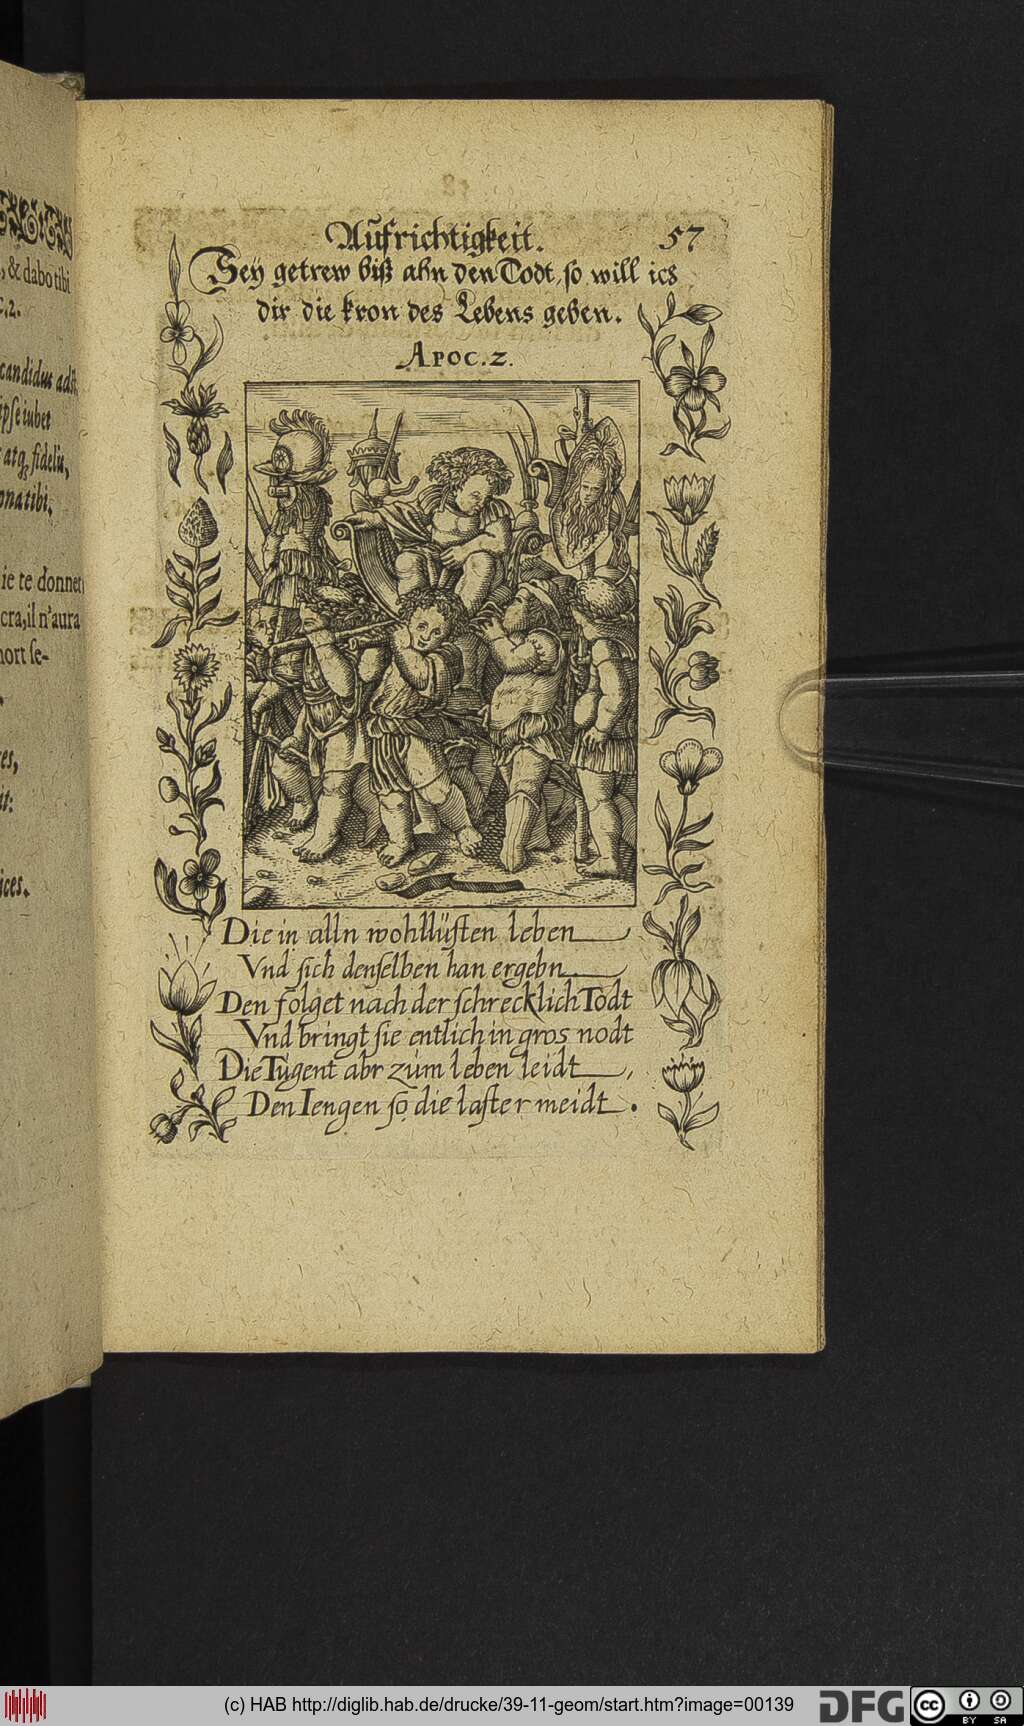 , & dabo tibi
c. 2.
candidus
ipse iubet
atq; fidelis,
ona tibi.
ie te donner
cra, il n'aura
mort se-
es,
it:
ices.
Aufrichtigkeit. 57
Sey getrew biß ahn den Todt, so will ich
dir die kron des Lebens geben.
APOC. 2.
Die in alln wohllüsten leben
Vnd sich denselben han ergebn
Den folget nach der schrecklich Todt
Vnd bringt sie entlich in gros nodt
Die Tugent abr zum leben leidt,
Den Iengen so die laster meidt.
(c) HAB http://diglib.hab.de/drucke/39-11-geom/start.htm?image=00139
DFG
cc BY SA